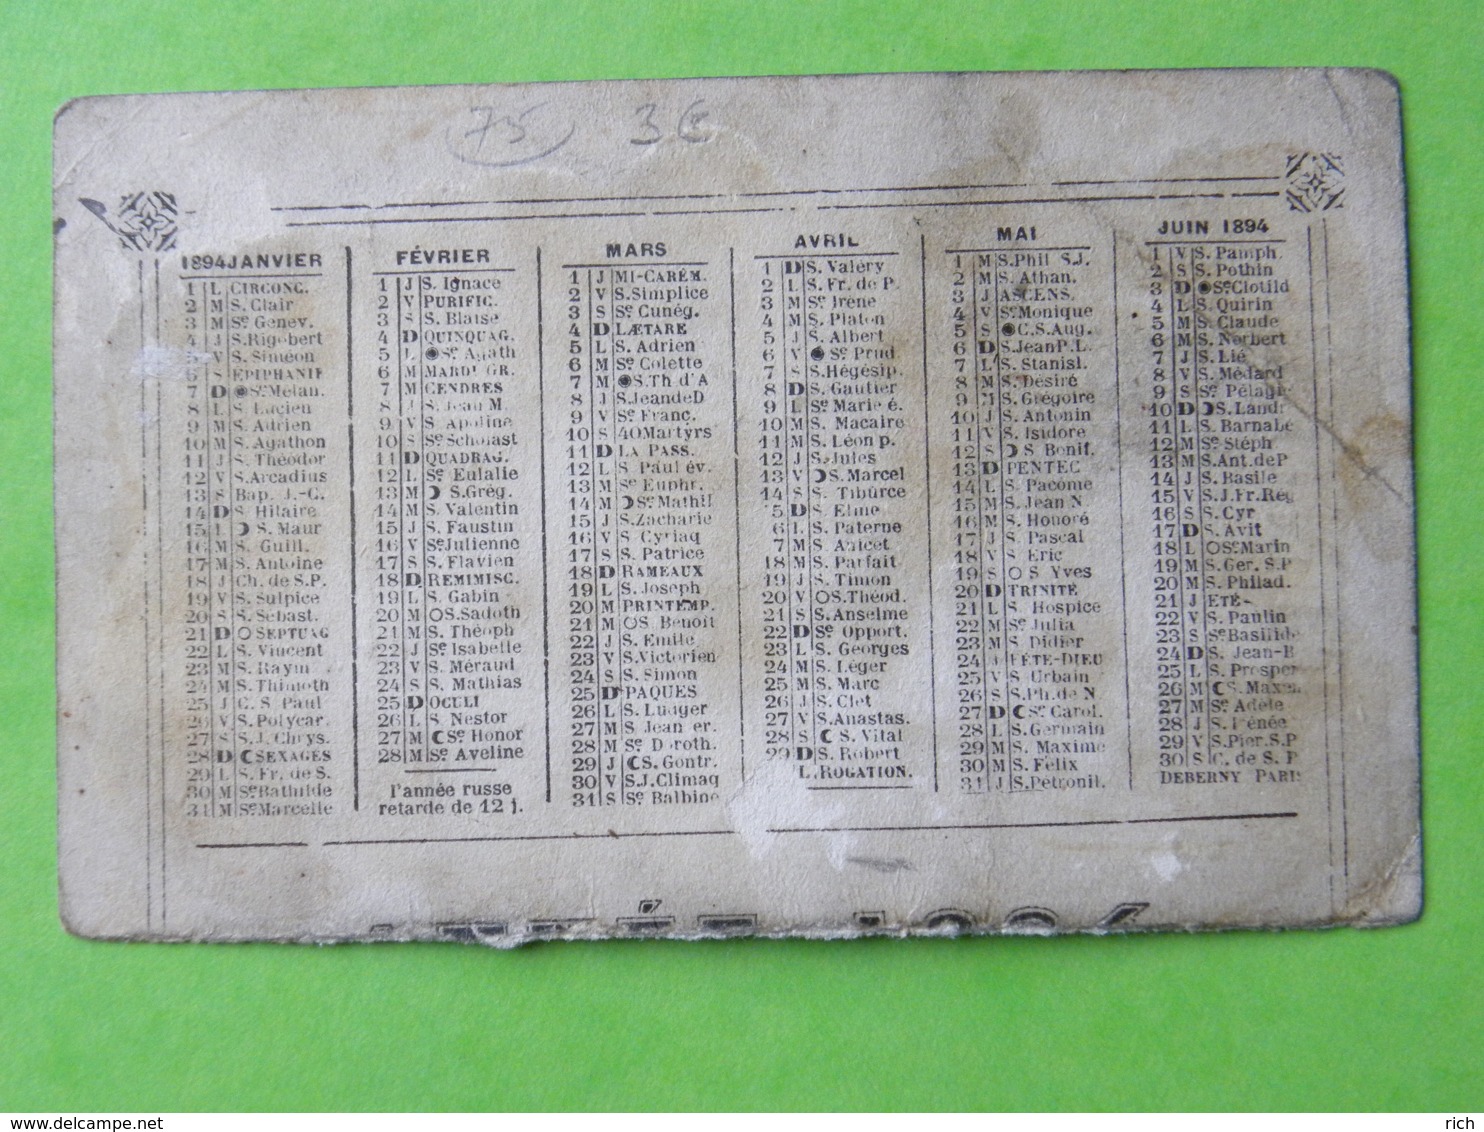 75 3€
1894 JANVIER
1 L CIRCONC.
2 M S. Clair
3 M Se Genev.
4 J S. Rigobert
5 V S. Siméon
6 S EPIPHANIE
7 D Se Melan.
8 L S. Lucien
9 M S. Adrien
10 M S. Agathon
11 J S. Théodor
12 V S. Arcadius
13 S Bap. J.-C.
14 D S. Hilaire
15 L S. Maur
16 M S. Guill.
17 M S. Antoine
18 J Ch. de S.P.
19 V S. Sulpice
20 S S. Sebast.
21 D SEPTUAG
22 L S. Vincent
23 M S. Raym
24 M S. Thimoth
25 J C. S. Paul
26 V S. Polycar.
27 S S.J. Chrys.
28 D SEXAGES
29 L S. Fr. de S.
30 M Se Bathilde
31 M Se Marcelle
FÉVRIER
1 J S. Ignace
2 V PURIFIC.
3 S S. Blaise
4 D QUINQUAG.
5 L Se Agath
6 M MARDI GR.
7 M CENDRES
8 J S. Jean M.
9 V S. Apoline
10 S Se Scholast
11 D QUADRAG.
12 L Se Eulalie
13 M S. Grég.
14 M S. Valentin
15 J S. Faustin
16 V Se Julienne
17 S S. Flavien
18 D REMIMISC.
19 L S. Gabin
20 M S. Sadoth
21 M S. Théoph
22 J Se Isabelle
23 V S. Méraud
24 S S. Mathias
25 D OCULI
26 L S. Nestor
27 M Se Honor
28 M Se Aveline
l'année russe
retarde de 12 j.
MARS
1 J MI-CARÉM.
2 V S. Simplice
3 S Se Cunég.
4 D LÆTARE
5 L S. Adrien
6 M Se Colette
7 M S. Th. d'A
8 J S. Jean de D
9 V Se Franç.
10 S 40 Martyrs
11 D LA PASS.
12 L S. Paul év.
13 M Se Euphr.
14 M Se Mathil
15 J S. Zacharie
16 V S. Cyriaq
17 S S. Patrice
18 D RAMEAUX
19 L S. Joseph
20 M PRINTEMP.
21 M S. Benoît
22 J S. Emile
23 V S. Victorien
24 S S. Simon
25 D PAQUES
26 L S. Ludger
27 M S. Jean er.
28 M Se Doroth.
29 J S. Gontr.
30 V S.J. Climaq
31 S Se Balbine
AVRIL
1 D S. Valéry
2 L S. Fr. de P.
3 M Se Irène
4 M S. Platon
5 J S. Albert
6 V Se Prud
7 S S. Hégésip.
8 D S. Gautier
9 L Se Marie é.
10 M S. Macaire
11 M S. Léon p.
12 J S. Jules
13 V S. Marcel
14 S S. Tiburce
5 D S. Elme
6 L S. Paterne
7 M S. Anicet
18 M S. Parfait
19 J S. Timon
20 V S. Théod.
21 S S. Anselme
22 D Se Opport.
23 L S. Georges
24 M S. Léger
25 M S. Marc
26 J S. Clet
27 V S. Anastas.
28 S S. Vital
29 D S. Robert
L. ROGATION.
MAI
1 M S. Phil S.J.
2 M S. Athan.
3 J ASCENS.
4 V Se Monique
5 S C.S. Aug.
6 D S. Jean P.L.
7 L S. Stanisl.
8 M S. Désiré
9 M S. Grégoire
10 J S. Antonin
11 V S. Isidore
12 S S Bonif.
13 D PENTEC
14 L S. Pacome
15 M S. Jean N
16 M S. Honoré
17 J S. Pascal
18 V S. Eric
19 S S Yves
20 D TRINITÉ
21 L S. Hospice
22 M Se Julia
23 M S. Didier
24 J FÊTE-DIEU
25 V S. Urbain
26 S S. Ph. de N
27 D Se Carol.
28 L S. Germain
29 M S. Maxime
30 M S. Félix
31 J S. Pétronil.
JUIN 1894
1 V S. Pamph
2 S S. Pothin
3 D Se Clotild
4 L S. Quirin
5 M S. Claude
6 M S. Norbert
7 J S. Lié
8 V S. Médard
9 S Se Pélagie
10 D S. Landr
11 L S. Barnabé
12 M Se Stéph
13 M S. Ant. de P
14 J S. Basile
15 V S.J. Fr. Rég
16 S S. Cyr
17 D S. Avit
18 L Se Marin
19 M S. Ger. S.P
20 M S. Philad.
21 J ETÉ-
22 V S. Paulin
23 S Se Basilide
24 D S. Jean-B
25 L S. Prosper
26 M S. Maxen
27 M Se Adèle
28 J S. Irénée
29 V S. Pier. S.P
30 S C. de S. P
DEBERNY PARIS
rich